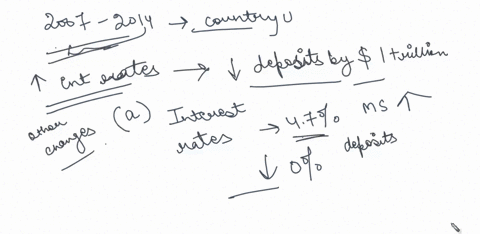 2007 - 2014 → country U
↑ int rates → ↓ deposits by $ 1 trillion
other changes (a) Interest rates → 4.7% MS ↑
↓ 0% deposits